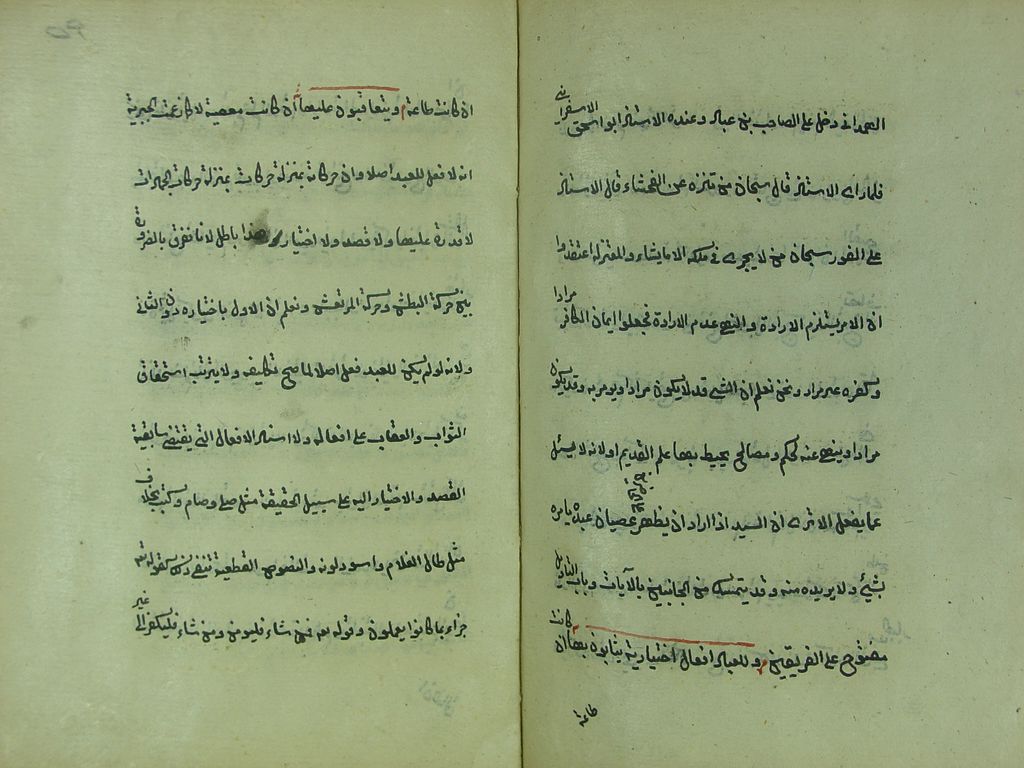 الهمدانى دخل على الصاحب بن عباد وعنده الاستاذ ابو اسحق الاسفراينى
فلما راى الاستاذ قال سبحان من تنزه عن الفحشاء قال الاستاذ
على الفور سبحان من لا يجرى فى ملكه الا ما يشاء والمعتزلة اعتقدوا
ان الامر يستلزم الارادة والنهى عدم الارادة فجعلوا ايمان الكافر مرادا
وكفره غير مراد ونحن نعلم ان الشئ قد لا يكون مرادا ويومر به وقد يكون
مرادا وينهى عنه لحكم ومصالح يحيط بها علم القديم او لانه لا يسئل
عما يفعل الا ترى ان السيد اذا اراد ان يظهر على الحاضرين عصيان عبده يامره
بشئ ولا يريده منه وقد يتمسك من الجانبين بالآيات وباب التاويل
مفتوح على الفريقين وللعباد افعال اختيارية يثابون بها ان كانت
طاعة
ان كانت طاعة ويتعاقبون عليها ان كانت معصية لا كما زعمت الجبرية
انه لا فعل للعبد اصلا وان حركاته بمنزلة حركات بمنزلة حركات الجمادات
لا قدرة عليها ولا قصد ولا اختيار وهذا باطل لانا نفرق بالضرورة
بين حركة البطش وحركة المرتعش ونعلم ان الاول باختياره دون الثانى
ولانه لو لم يكن للعبد فعل اصلا لما صح تكليفه ولا يترتب استحقاق
الثواب والعقاب على افعاله ولا اسناد الافعال التى يقتضى سابقية
القصد والاختيار اليه على سبيل الحقيقة مثل صلى وصام وكتب بخلاف
مثل طال الغلام واسود لونه والنصوص القطعية تنفى ذلك كقوله تع
جزاء بما كانوا يعملون وقوله تع فمن شاء فليومن ومن شاء فليكفر الى غير